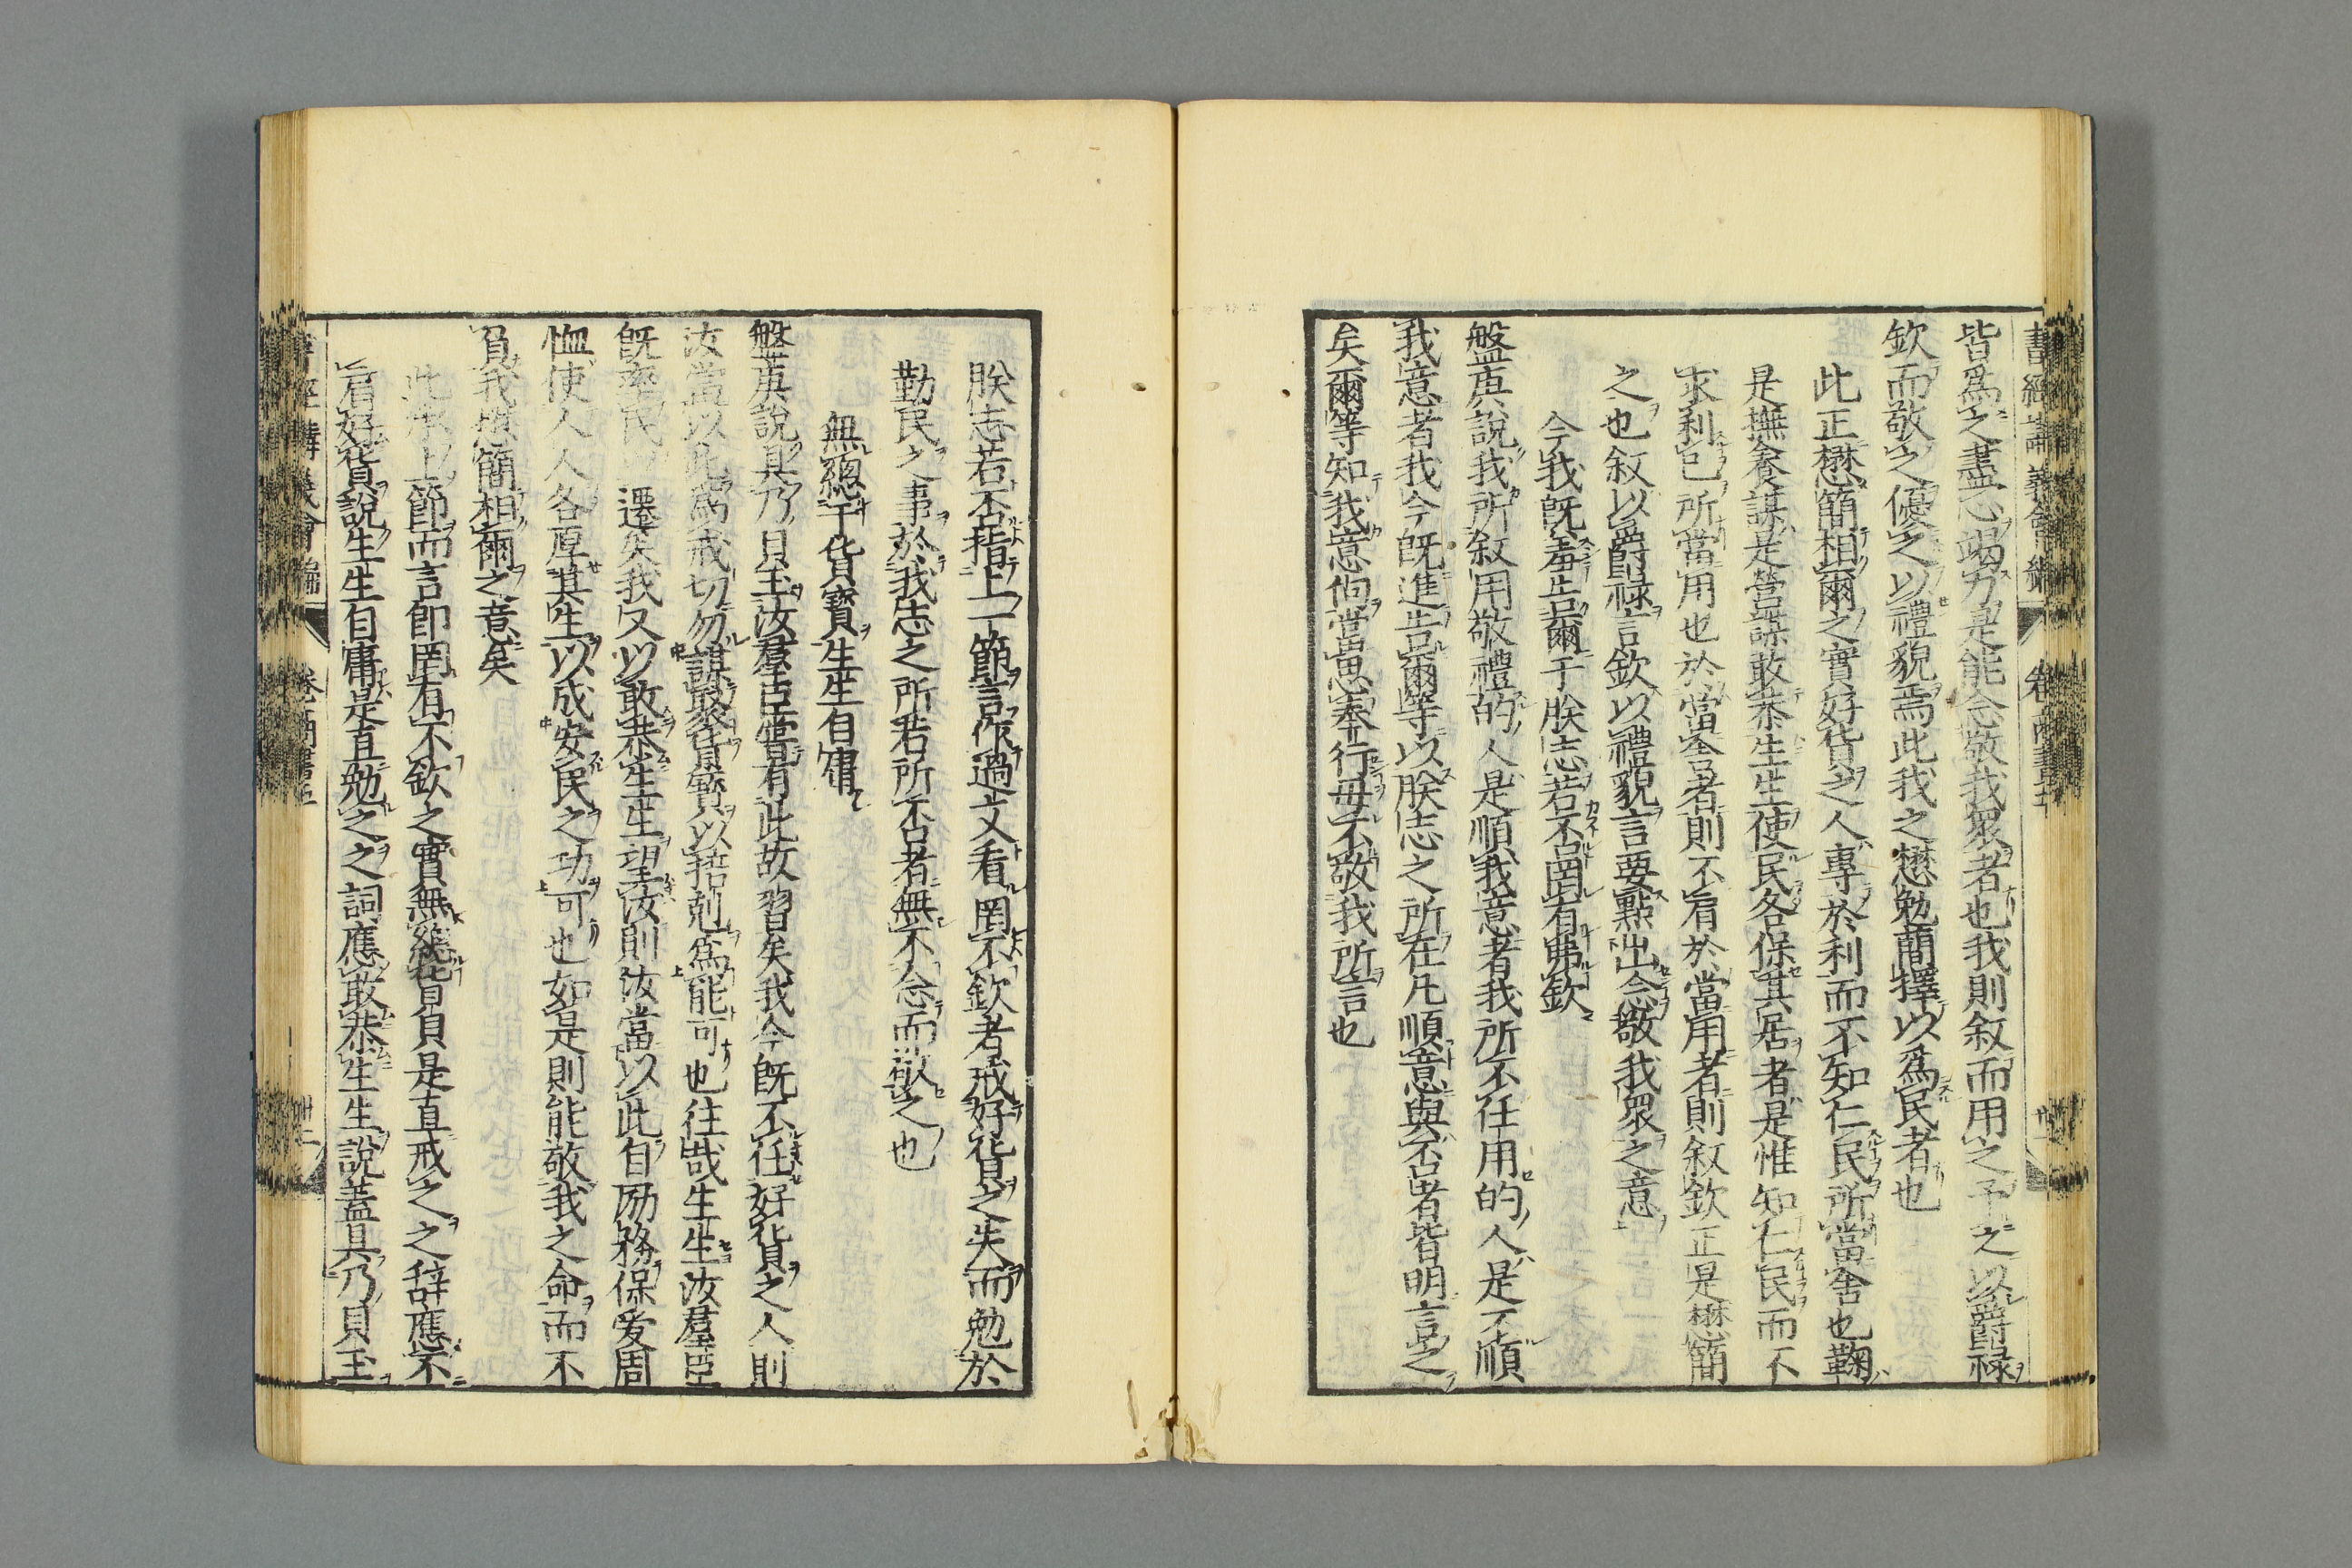 皆爲之盡心竭力是能念敬我衆者也我則叙而用之予之以爵禄
欽而敬之優之以禮貌焉此我之懋勉蕳擇以爲民者也
此正懋簡相爾之實好貨之人專於利而不知仁民所當舍也鞠
是撫養謀是營謀敢恭生生使民各保其居者是惟知仁民而不
求利已所當用也於當舍者則不肩於當用者則叙欽正是懋簡
之也叙以爵禄言欽以禮貌言要點出念敬我衆之意
今我既羞告爾于朕志若否罔有弗欽
盤庚說我所叙用敬禮的人是順我意者我所不任用的人是不順
我意者我今既進告爾等以朕志之所在凡順意與否者皆明言之
矣爾等知我意向當思奉行毋不敬我所言也
朕志若否指上一節言作過文看罔不欽者戒好貨之失而勉於
勤民之事於我志之所若所否者無不念而敬之也
無總于貨寶生生自庸
盤庚說具乃貝玉汝羣臣嘗有此故習矣我今既不任好貨之人則
汝當以此爲戒切勿謀聚貨寶以掊剋爲能可也往哉生生汝羣臣
既率民以遷矣我又以敢恭生生望汝則汝當以此自励務保爱周
恤使人人各厚其生以成安民之功可也如是則能敬我之命而不
負我懋簡相爾之意矣
此承上節而言卽罔有不欽之實無總貨貝是直戒之之辞應不
肩好貨說生生自庸是直勉之之詞應敢恭生生說蓋具乃貝玉